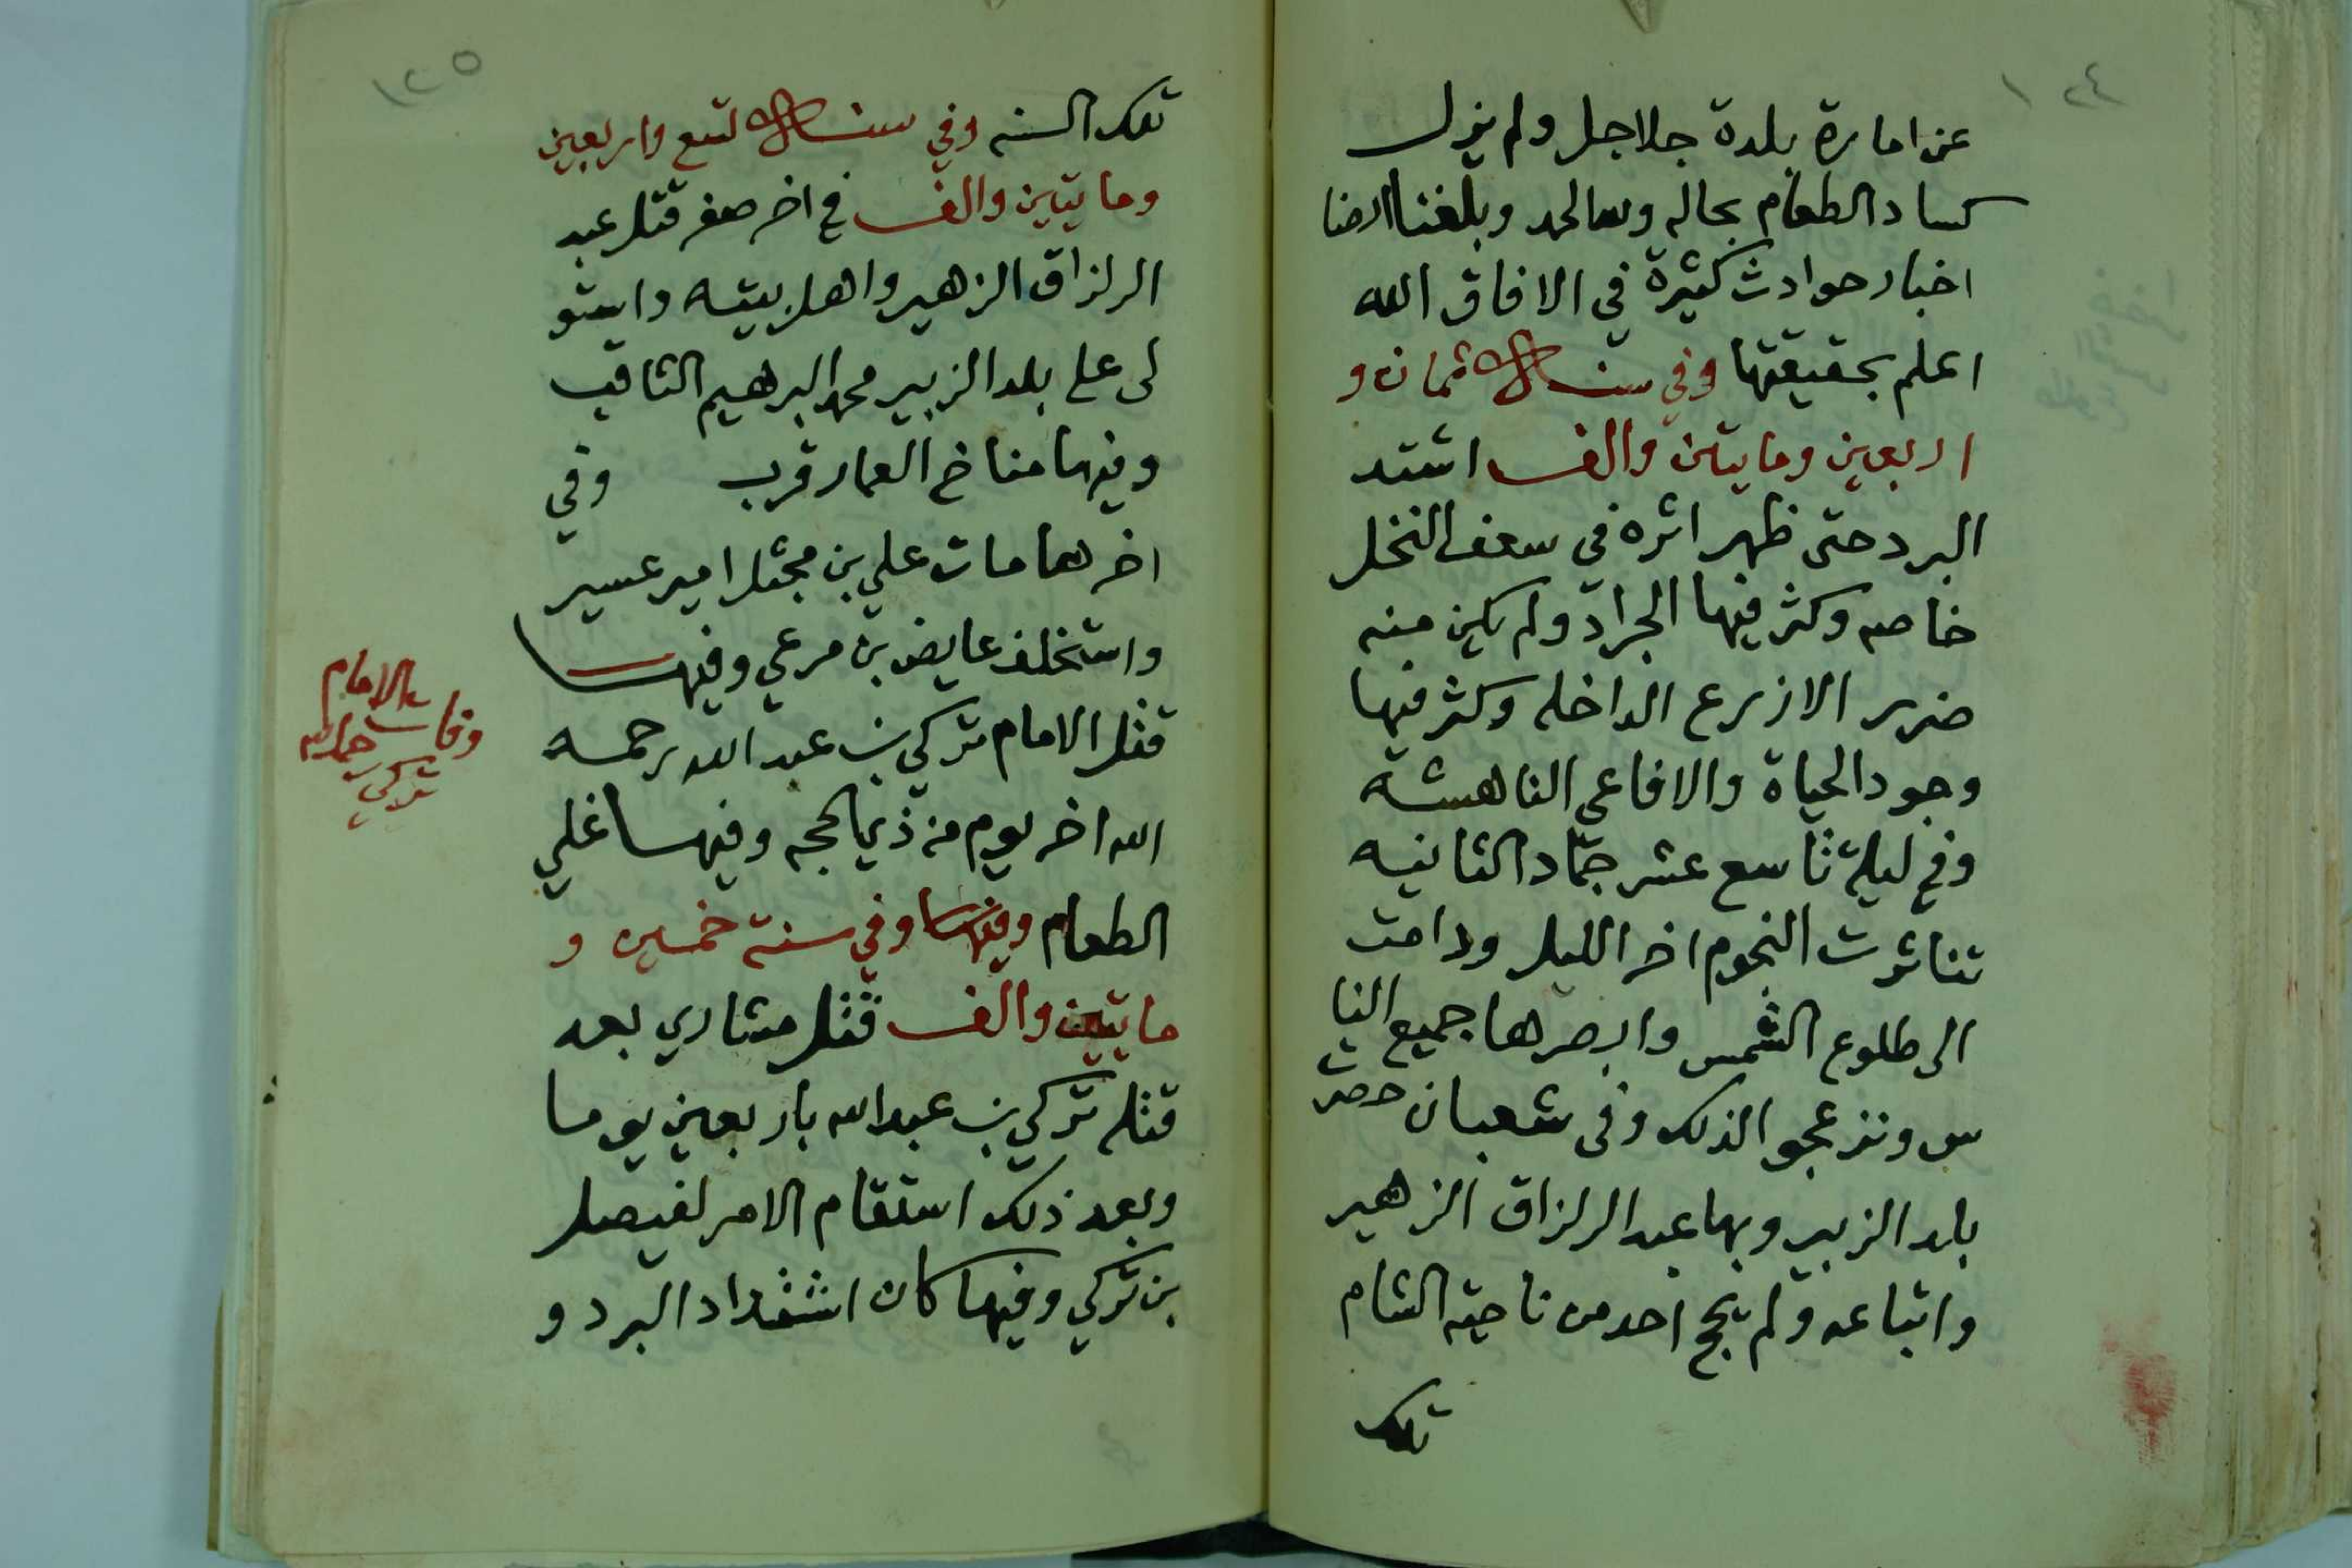 ١٢٤
عن امارة بلدة جلاجل ولم يزل
كساد الطعام بحاله وله الحمد وبلغنا ايضا
اخبار حوادث كثيرة في الافاق الله
اعلم بحقيقتها وفي سنة ثمان و
اربعين ومايتين والف اشتد
البرد حتى ظهر اثره في سعف النخل
خاصه وكثر فيها الجراد ولم يكن منه
ضرر الا زرع الداخله وكثر فيها
وجود الحياة والافاعي الناهشة
وفي ليلة تاسع عشر جماد الثانيه
تناثرت النجوم اخر الليل ودامت
الى طلوع الشمس وابصرها جميع النا
س ونزعجو الذلك وفى شعبان حصرت
بلد الزبير وبها عبد الرزاق الزهير
واتباعه ولم يحج احد من ناحية الشام
تلك
١٢٥
تلك السنه وفي سنة تسع واربعين
ومايتين والف في اخر صفر قتل عبد
الرزاق الزهير واهل بيته واستو
لى على بلد الزبير محمد البرهيم الثاقب
وفيها مناخ العمار قرب وفي
اخرها مات علي بن مجثل امير عسير
واستخلف عايض بن مرعي وفيها
قتل الامام تركي بن عبد الله رحمه
الله اخر يوم من ذي الحجه وفيها غلي
الطعام وفيها وفي سنة خمسين و
مايتين والف قتل مشاري بعد
قتله تركي بن عبد الله باربعين يوما
وبعد ذلك استقام الامر لفيصل
بن تركي وفيها كان اشتداد البرد و
وفات الامام
تركي رحمه الله